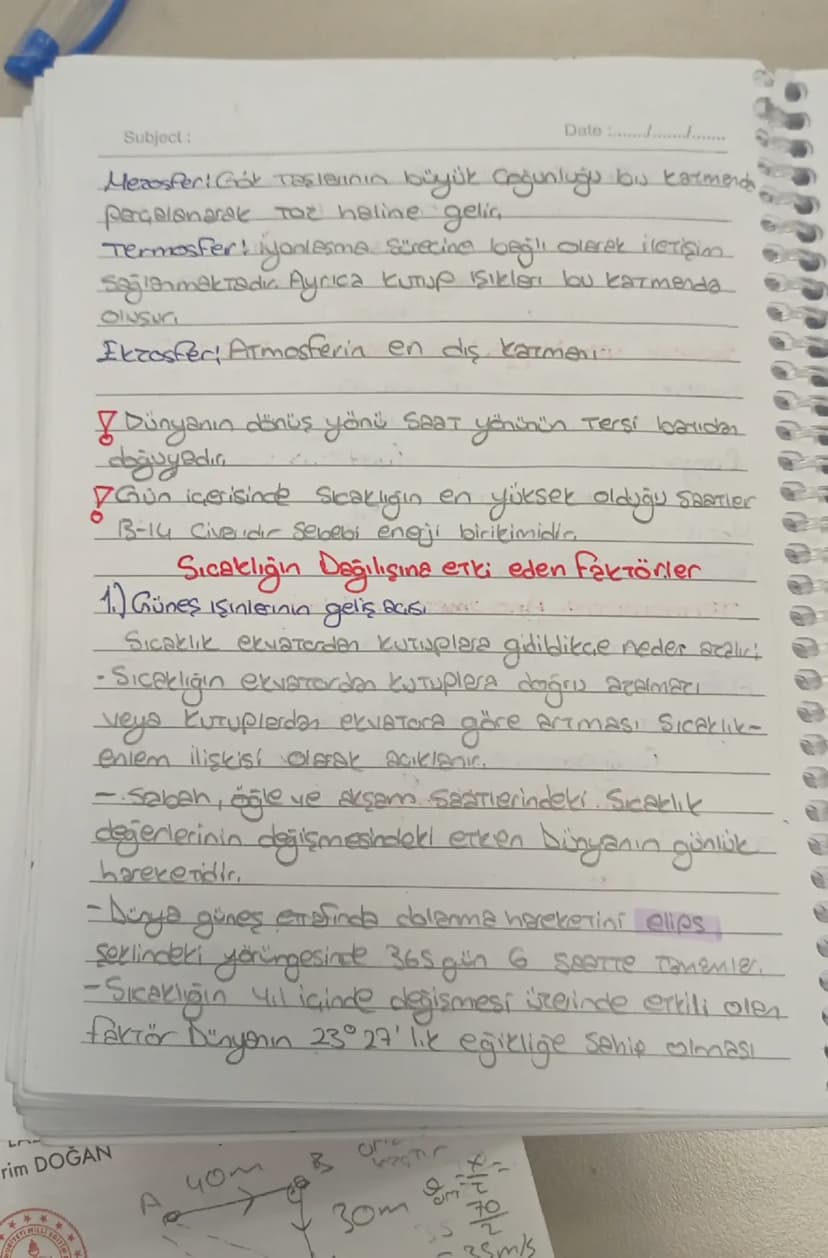 Subject :
Date :....../......./.......
Mezosfer: Gök Taşlarının büyük çoğunluğu bu katmanda
parçalanarak toz haline gelir.
Termosfer: iyonlaşma sürecine bağlı olarak iletişim
sağlanmaktadır. Ayrıca kutup ışıkları bu katmanda
oluşur.
Ekzosfer: Atmosferin en dış katmanı.
! Dünyanın dönüş yönü saat yönünün tersi batıdan
doğuyadır.
! Gün içerisinde sıcaklığın en yüksek olduğu saatler
13-14 civarıdır sebebi enerji birikimidir.
Sıcaklığın Dağılışına etki eden faktörler
1.) Güneş ışınlarının geliş açısı
Sıcaklık ekvatordan kutuplara gidildikçe neden azalır?
- Sıcaklığın ekvatordan kutuplara doğru azalması
veya kutuplardan ekvatora göre artması sıcaklık-
enlem ilişkisi olarak açıklanır.
- Sabah, öğle ve akşam saatlerindeki sıcaklık
değerlerinin değişmesindeki etken Dünyanın günlük
hareketidir.
- Dünya güneş etrafında dolanma hareketini elips
şeklindeki yörüngesinde 365 gün 6 saatte tamamlar.
- Sıcaklığın yıl içinde değişmesi üzerinde etkili olan
faktör Dünyanın 23° 27' lik eğikliğe sahip olması
rim DOĞAN
A 40m B
30m
x/t =
70/2
= 35m/s